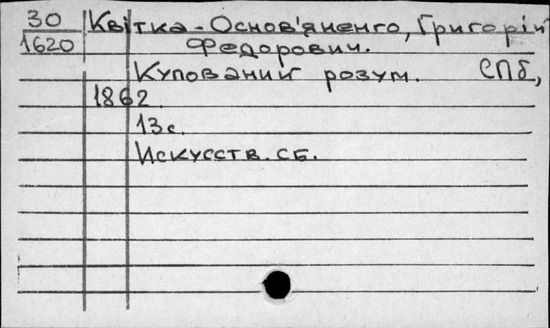 30 Квітка-Основ'яненго, Григорій
1620 Федорович.
Купований розум. СПб,
1862.
13с.
Искусств. сб.